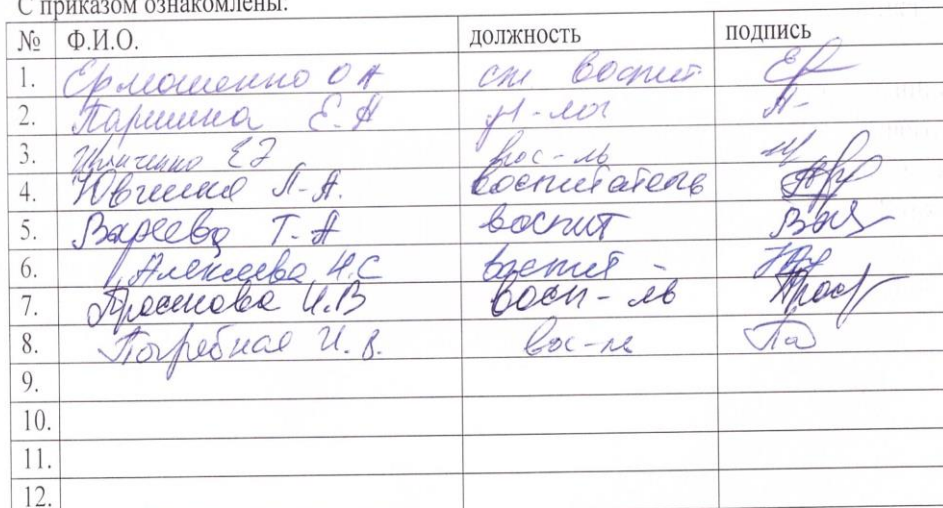 С приказом ознакомлены:
№ Ф.И.О. должность подпись
1. Ермошенко О А ст воспит Ер
2. Паршина Е.А П-
3. Е Э вос-ль
4. Л.А. воспитатель
5. Вареева Т.А воспит Вар
6. Алексеева Н.С воспит -
7. Проскова И.В восп-ль Прос
8. Погребная И.В. вос-ль По
9.
10.
11.
12.